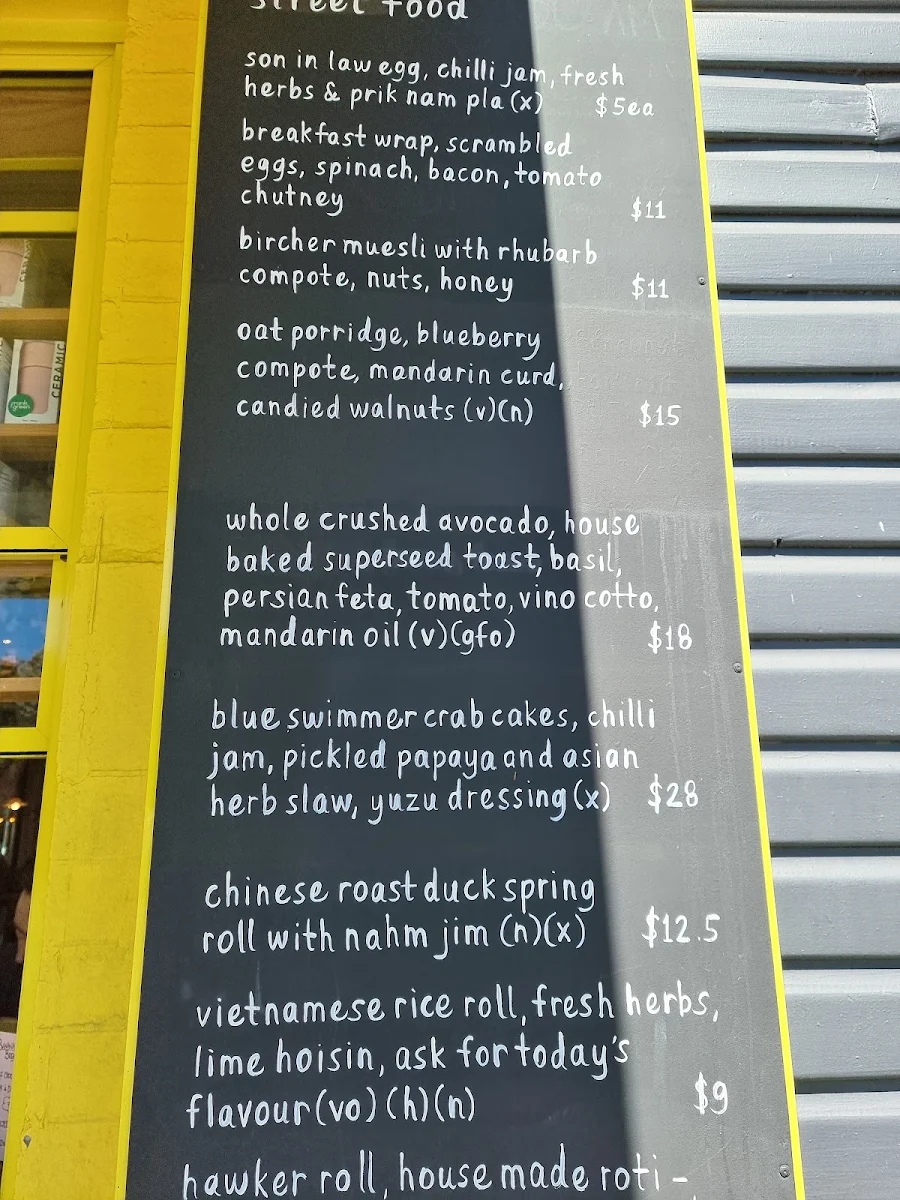 street food
son in law egg, chilli jam, fresh
herbs & prik nam pla (x) $5ea
breakfast wrap, scrambled
eggs, spinach, bacon, tomato
chutney $11
bircher muesli with rhubarb
compote, nuts, honey $11
oat porridge, blueberry
compote, mandarin curd,
candied walnuts (v)(n) $15
whole crushed avocado, house
baked superseed toast, basil,
persian feta, tomato, vino cotto,
mandarin oil (v)(gfo) $18
blue swimmer crab cakes, chilli
jam, pickled papaya and asian
herb slaw, yuzu dressing (x) $28
chinese roast duck spring
roll with nahm jim (n)(x) $12.5
vietnamese rice roll, fresh herbs,
lime hoisin, ask for today's
flavour (vo) (h)(n) $9
hawker roll, house made roti -
CERAMIC